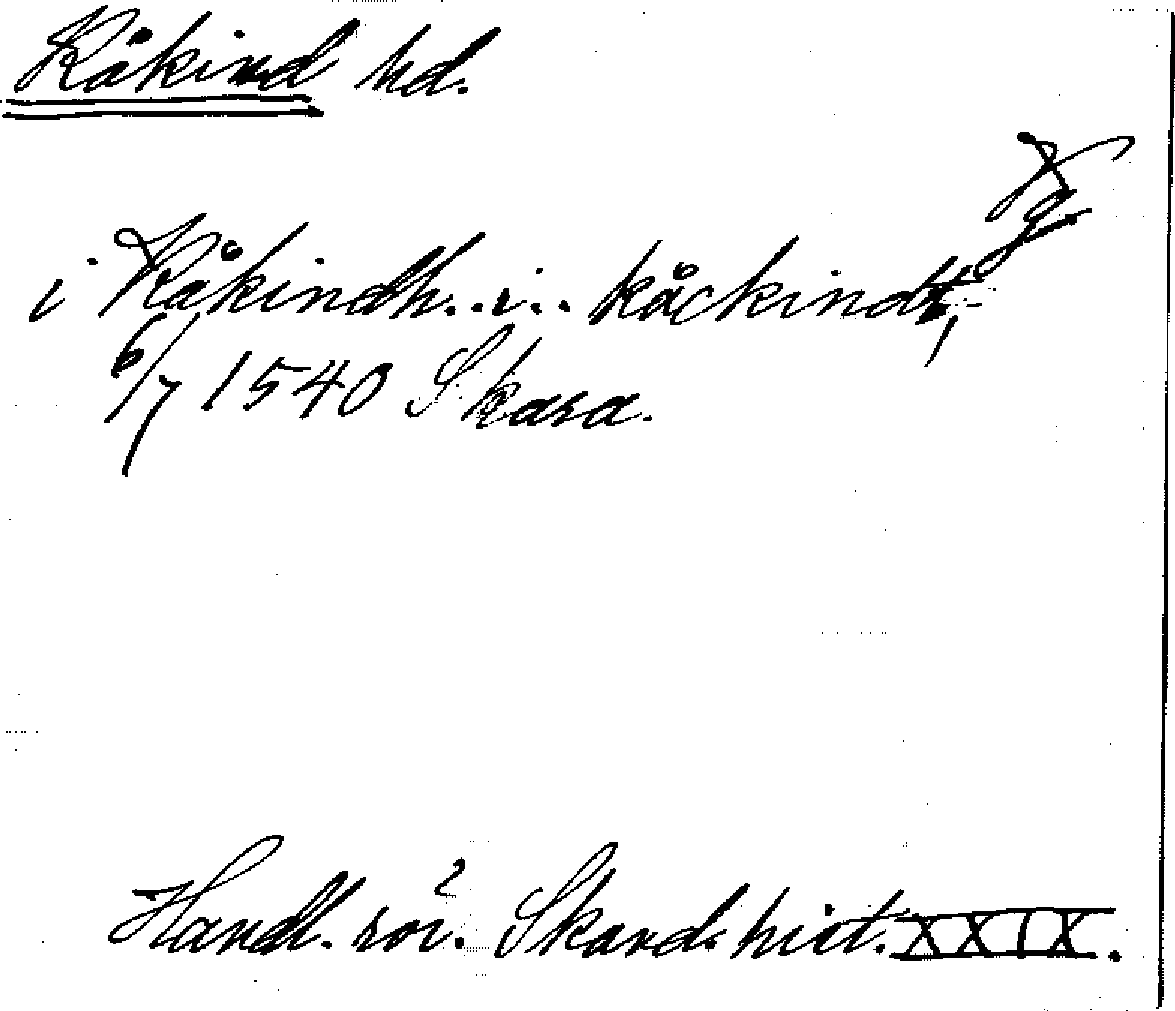 Kåkind hd.
Vg
i Kåkindh. .i.. kåckindt,
6/7 1540 Skara.
Handl. rör. Skand. hist. XXIX.